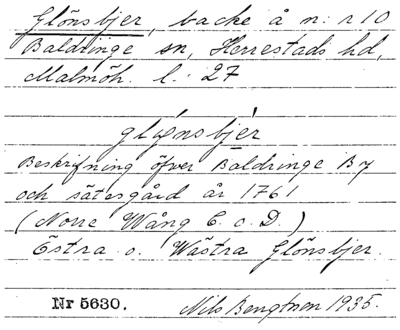 Glönsbjer, backe å n: r 10
Baldringe sn, Herrestads hd,
Malmöh. l. 27
glỿnsbjér
Beskrifning öfver Baldringe By
och sätesgård år 1761
(Norre Wång C. o. D.)
Östra o. Wästra Glönsbjer.
Nr 5630. Nils Bengtson 1935.